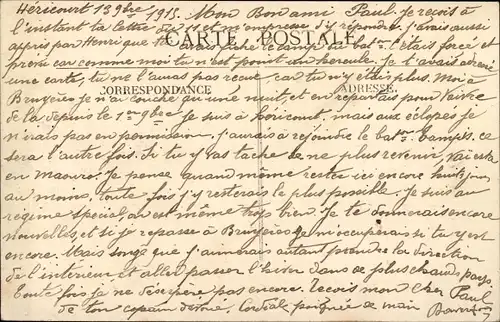 Héricourt 13 9bre 1915. Mon Bon ami Paul. Je reçois à
l'instant ta lettre de et m'empresse d'y répondre. J'avais aussi
appris par Henri que tu avais fiché le camp du bat.on C'était forcé et
prévu car comme moi tu n'est point un hercule. Je t'avais adressé
CARTE POSTALE
une carte, tu ne l'auras pas reçue, car tu n'y étais plus. Moi à
Bruyères je n'ai couché qu'une nuit, et en repartais pour
CORRESPONDANCE
ADRESSE
de la depuis le 1er 9bre je suis à Héricourt, mais aux éclopés je
n'irais pas en permission, j'aurais à rejoindre le bat.on temps. ce
sera l'autre fois. Si tu y vas tache de ne plus revenir, vai esta
en Je pense quand même rester ici encore huit jours
au moins, toute fois j'y resterais le plus possible. Je suis au
régime spécial, on est même trop bien. Je te donnerais encore
nouvelles, et si je repasse à Bruyères je m'occuperais si tu y est
encore. Mais songe que j'aimerais autant prendre la direction
de l'intérieur et aller passer l'hiver dans ce plus chauds pays
Toute fois je ne désespère pas encore. Reçois mon cher Paul
de ton copain dévoué, Cordiale poignée de main